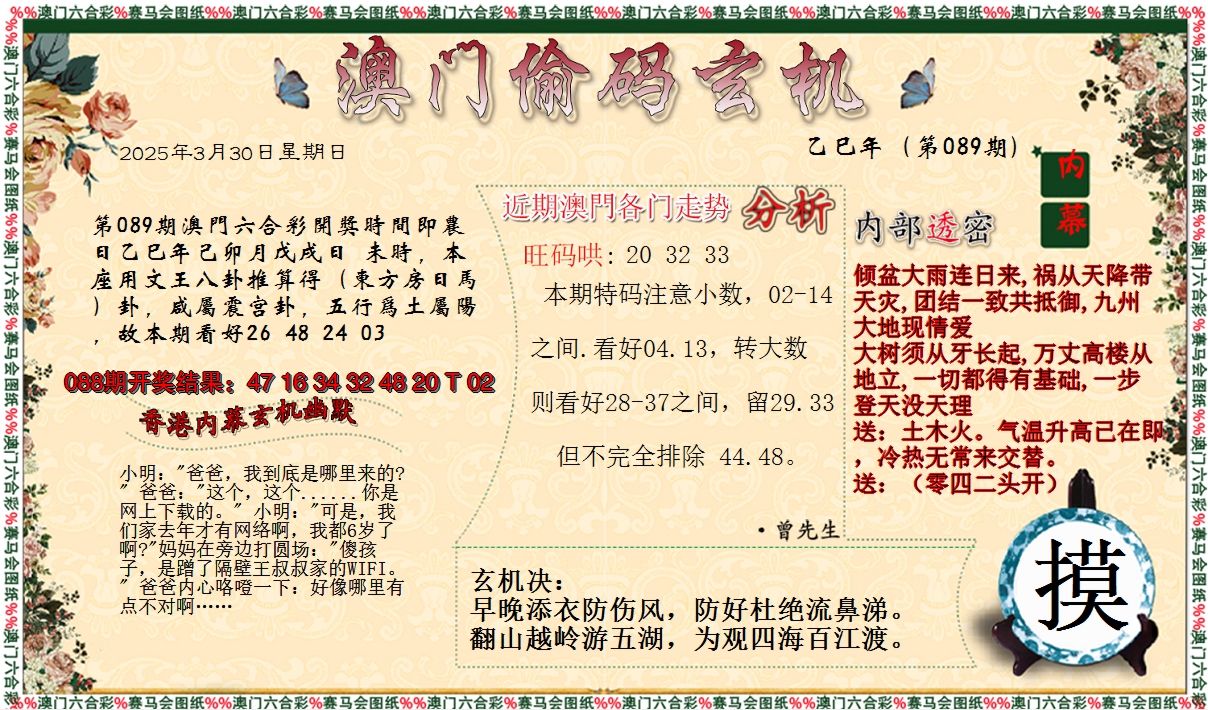 %%澳门六合彩%赛马会图纸%%澳门六合彩%赛马会图纸%%澳门六合彩%赛马会图纸%%澳门六合彩%赛马会图纸%%澳门六合彩%赛马会图纸%%澳门六合彩%赛马会图纸%%
澳门偷码玄机
2025年3月30日星期日
乙巳年（第089期）
内幕
第089期澳門六合彩開獎時間即農
日乙巳年己卯月戊戌日 未時，本
座用文王八卦推算得（東方房日馬
）卦，咸屬震宫卦，五行爲土屬陽
，故本期看好26 48 24 03
088期开奖结果：47 16 34 32 48 20 T 02
香港内幕玄机幽默
小明："爸爸，我到底是哪里来的?
" 爸爸："这个，这个......你是
网上下载的。" 小明："可是，我
们家去年才有网络啊，我都6岁了
啊?"妈妈在旁边打圆场："傻孩
子，是蹭了隔壁王叔叔家的WIFI。
" 爸爸内心咯噔一下：好像哪里有
点不对啊……
近期澳門各门走势 分析
旺码哄: 20 32 33
本期特码注意小数，02-14
之间.看好04.13，转大数
则看好28-37之间，留29.33
但不完全排除 44.48。
·曾先生
内部透密
倾盆大雨连日来,祸从天降带
天灾,团结一致共抵御,九州
大地现情爱
大树须从牙长起,万丈高楼从
地立,一切都得有基础,一步
登天没天理
送：土木火。气温升高已在即
，冷热无常来交替。
送：（零四二头开）
玄机决：
早晚添衣防伤风，防好杜绝流鼻涕。
翻山越岭游五湖，为观四海百江渡。
摸
%%澳门六合彩%赛马会图纸%%澳门六合彩%赛马会图纸%%澳门六合彩%赛马会图纸%%澳门六合彩%赛马会图纸%%澳门六合彩%赛马会图纸%%澳门六合彩%赛马会图纸%%